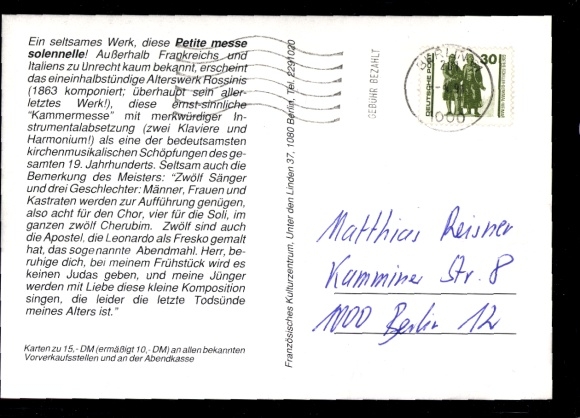 Ein seltsames Werk, diese Petite messe
solennelle! Außerhalb Frankreichs und
Italiens zu Unrecht kaum bekannt, erscheint
das eineinhalbstündige Alterswerk Rossinis
(1863 komponiert; überhaupt sein aller-
letztes Werk!), diese ernst-sinnliche
“Kammermesse” mit merkwürdiger In-
strumentalabsetzung (zwei Klaviere und
Harmonium!) als eine der bedeutsamsten
kirchenmusikalischen Schöpfungen des ge-
samten 19. Jahrhunderts. Seltsam auch die
Bemerkung des Meisters: “Zwölf Sänger
und drei Geschlechter: Männer, Frauen und
Kastraten werden zur Aufführung genügen,
also acht für den Chor, vier für die Soli, im
ganzen zwölf Cherubim. Zwölf sind auch
die Apostel, die Leonardo als Fresko gemalt
hat, das sogenannte Abendmahl. Herr, be-
ruhige dich, bei meinem Frühstück wird es
keinen Judas geben, und meine Jünger
werden mit Liebe diese kleine Komposition
singen, die leider die letzte Todsünde
meines Alters ist.”
Karten zu 15,- DM (ermäßigt 10,- DM) an allen bekannten
Vorverkaufsstellen und an der Abendkasse
Französisches Kulturzentrum, Unter den Linden 37, 1080 Berlin, Tel. 2291020
GEBÜHR BEZAHLT
DEUTSCHE POST
30
1000
Matthias Reisner
Kamminer Str. 8
1000 Berlin 12